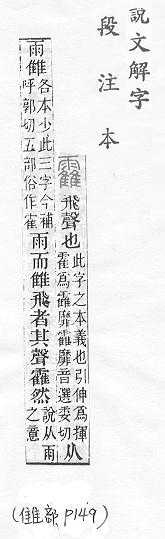 說文解字
段注本
靃飛聲也此字之本義也引伸爲揮霍爲靃靡靃靡音選委切从
雨雔各本少此三字今補呼郭切五部俗作霍雨而雔飛者其聲靃然說从雨之意
(雔部 P149)